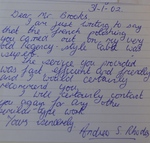 31-1-02
Dear Mr Brooks,
I am just writing to say
that the french polishing
you carried out on my very
old Regency style table was
superb.
The service you provided
was fast, efficient and friendly
and I would certainly
recommend you.
I will certainly contact
you again for any other
similar type work.
Yours sincerely
Andrea S. Rhodes